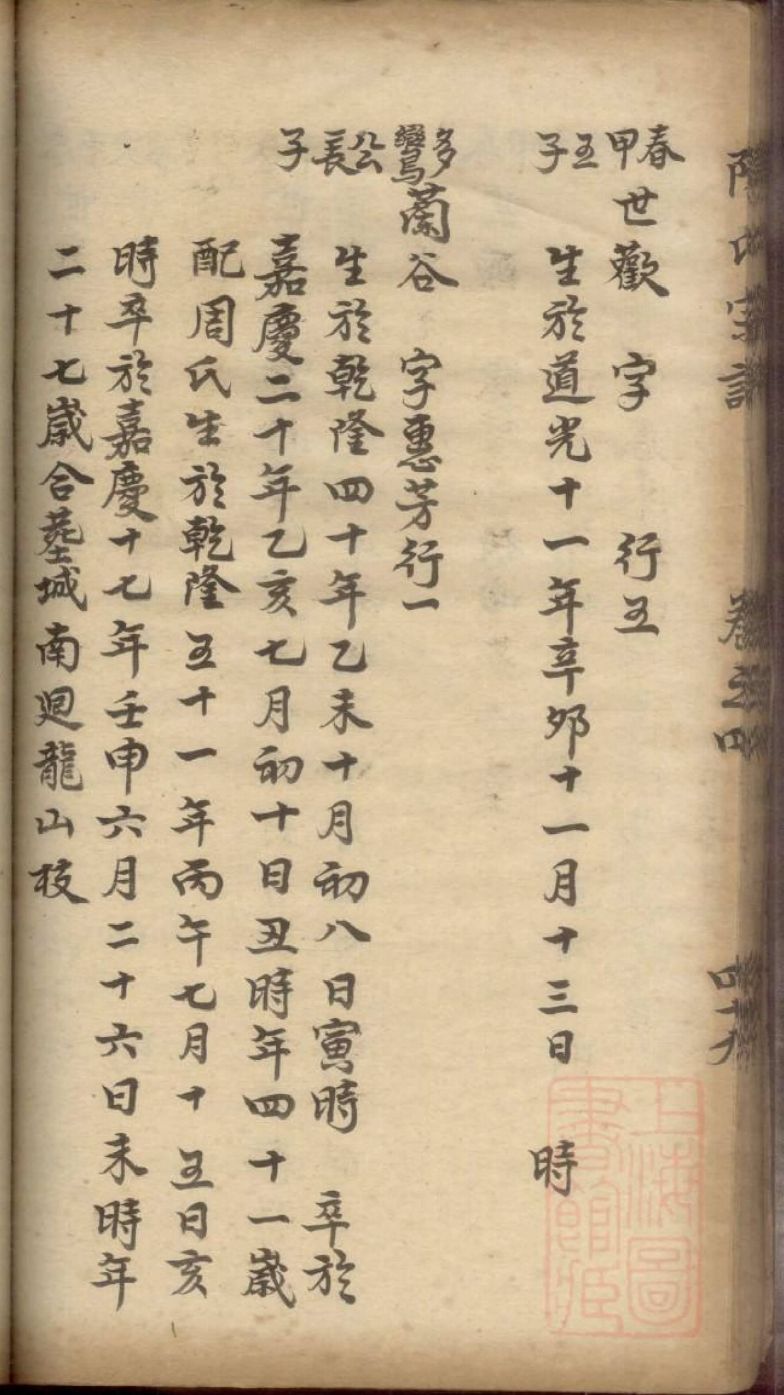 陳氏宗譜 卷之四 四十九
春甲五子
世歡 字 行五
生於道光十一年辛夘十一月十三日 時
多鸞公長子
蘭谷 字惠芳行一
生於乾隆四十年乙未十月初八日寅時 卒於
嘉慶二十年乙亥七月初十日丑時年四十一歲
配周氏生於乾隆五十一年丙午七月十五日亥
時卒於嘉慶十七年壬申六月二十六日未時年
二十七歲合塟城南廻龍山枝
上海圖書館藏